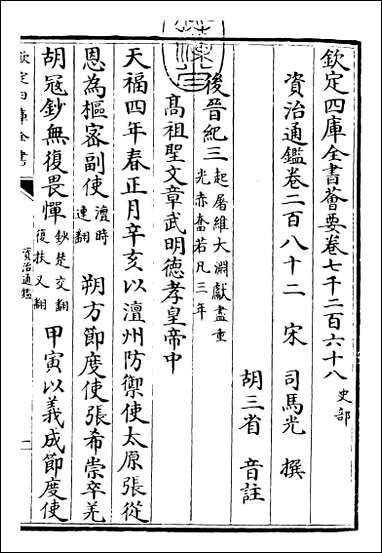 欽定四庫全書薈要卷七千二百六十八 史部
資治通鑑卷二百八十二
宋 司馬光 撰
胡三省 音註
後晉紀三 起屠維大淵獻盡重光赤奮若凡三年
高祖聖文章武明德孝皇帝中
天福四年春正月辛亥以澶州防禦使太原張從
恩為樞密副使 澶時連翻 朔方節度使張希崇卒羌
胡冠鈔無復畏憚 鈔楚交翻復扶又翻 甲寅以義成節度使
欽定四庫全書
資治通鑑